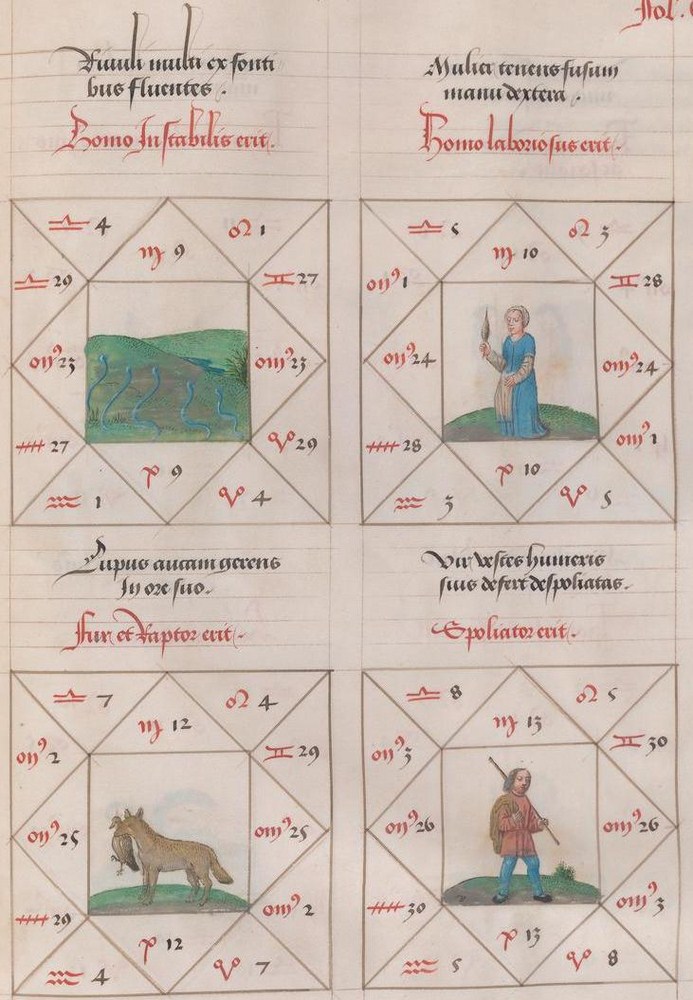 Fol.
Riuuli multi ex fonti
bus fluentes .
Homo Instabilis erit .
Mulier tenens fusum
manu dextera .
Homo laboriosus erit .
♎ 4
♍ 9
♌ 1
♎ 29
♊ 27
23
23
27
29
♒ 1
9
4
♎ 5
♍ 10
♌ 3
1
♊ 28
24
24
28
1
♒ 3
10
5
Lupus aucam gerens
In ore suo .
Fur et Raptor erit .
Vir vestes humeris
suis defert despoliatas .
Spoliator erit .
♎ 7
♍ 12
♌ 4
2
♊ 29
25
25
29
2
♒ 4
12
7
♎ 8
♍ 13
♌ 5
3
♊ 30
26
26
30
3
♒ 5
13
8